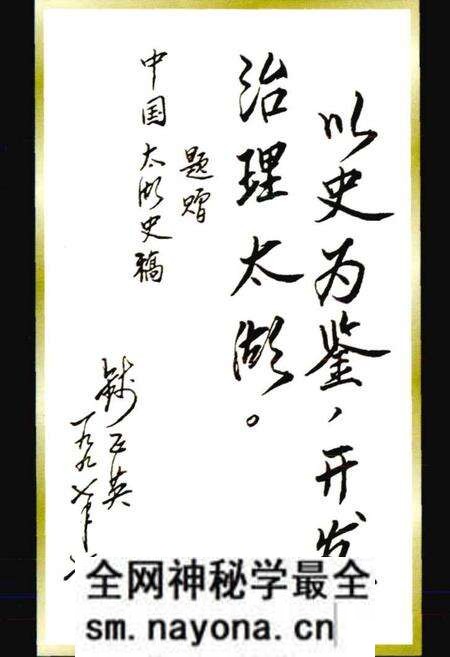 以史为鉴，开发
治理太湖。
题赠
中国太湖史稿
钱正英
一九九七年
全网神秘学最全
sm.nayona.cn